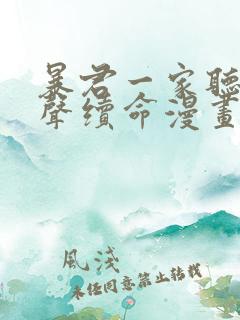 暴君一家聽
聲續命漫畫
風淺
未任同意禁止轉載